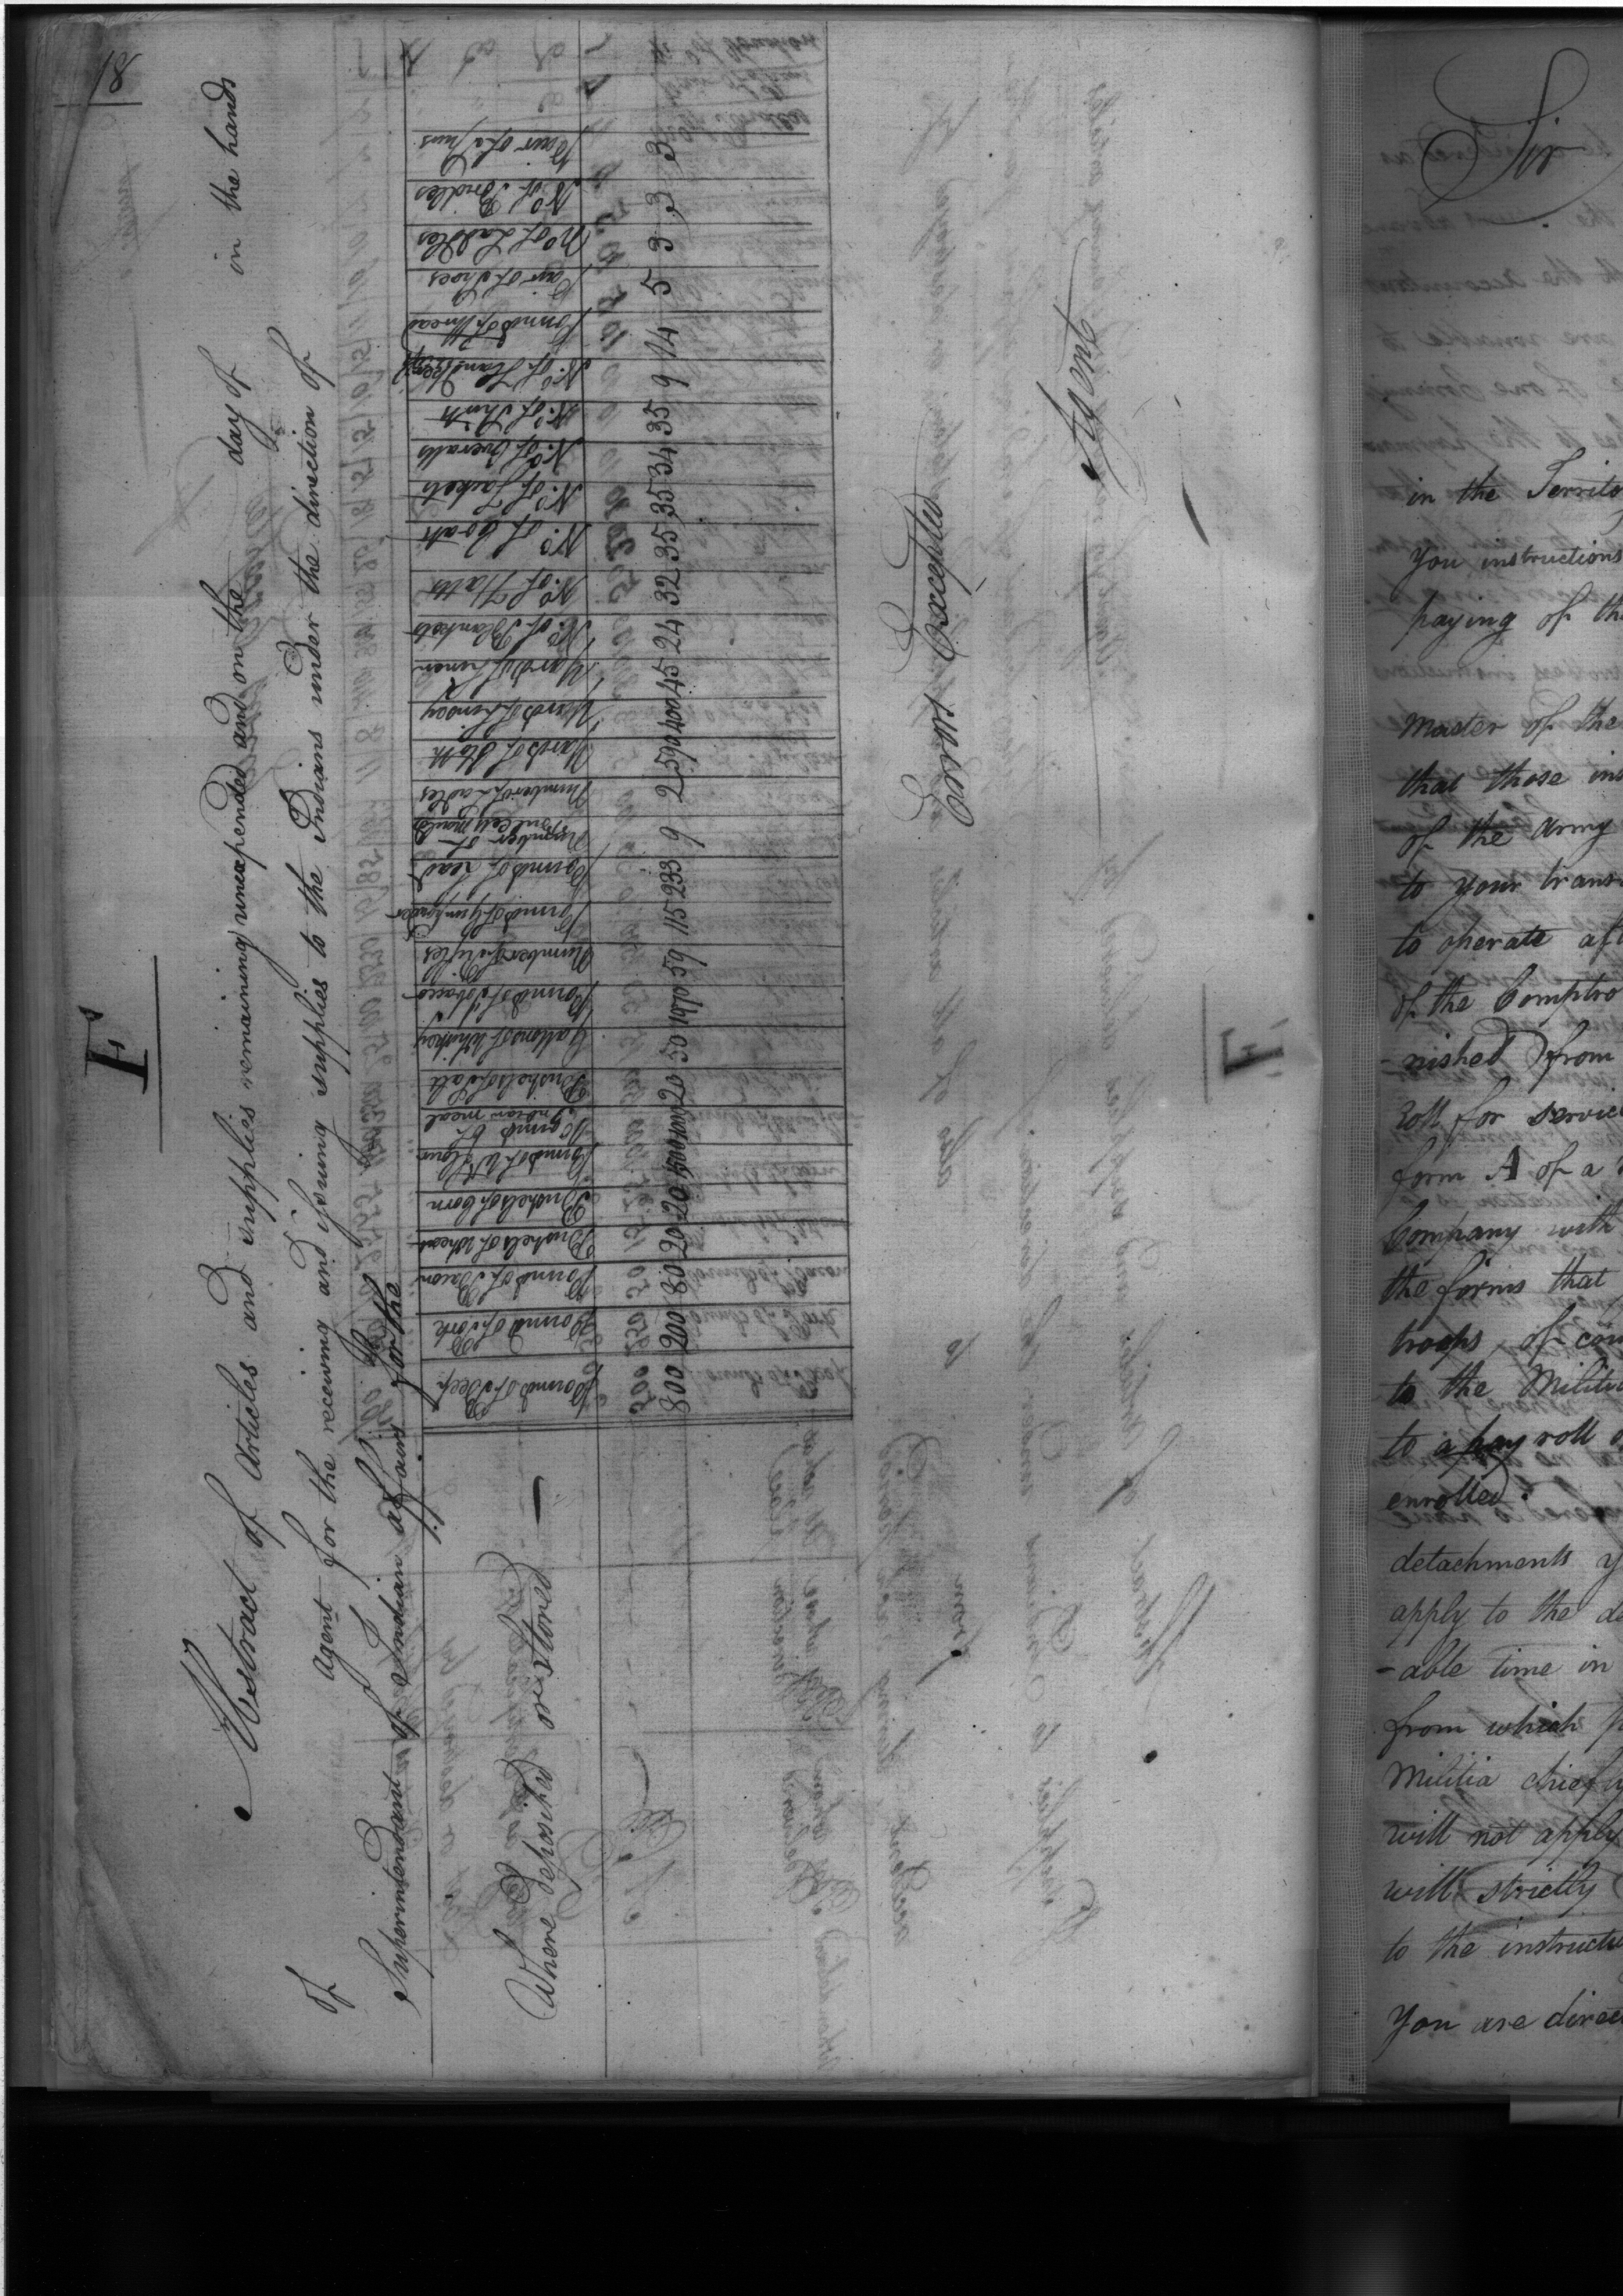 18
F
Abstract of Articles and supplies remaining unexpended and on the day of in the hands
of Agent for the receiving and issuing supplies to the Indians under the direction of
Superintendant of Indian affairs for the
Where deposited or stored
Pounds of Beef 800
Pounds of Pork 200
Pounds of Bacon 80
Bushels of Wheat 20
Bushels of Corn 20
Pounds of W. Flour
Pounds of Indian meal
Bushels of Salt 20
Gallons of Whiskey 50
Pounds of Tobacco
Number of Rifles 59
Pounds of Gunpowder 115
Pounds of Lead 233
Number of Bullet Moulds 9
Number of Ladles 2
Yards of Cloth 590
Yards of Linsey 400
Yards of Linen 45
No. of Blankets 24
No. of Hatts 32
No. of Coats 35
No. of Jackets 35
No. of Overalls 34
No. of Shirts 35
No. of Handkfs 9
Pounds of Thread 14
Pair of Shoes 5
No. of Saddles 3
No. of Bridles 3
Pair of 3
Errors Excepted
Agent
Sir
in the Territo
you instructions
paying of th
Master of the
that those ins
of the army
to your trans
to operate af
of the Comptro
-nished from
Roll for servic
form A of a
Company with
the forms that
troops of co
to the Militi
to a pay roll
enrolled.
detachments y
apply to the d
-able time in
from which
Militia chief
will not apply
will strictly
to the instruct
You are direc